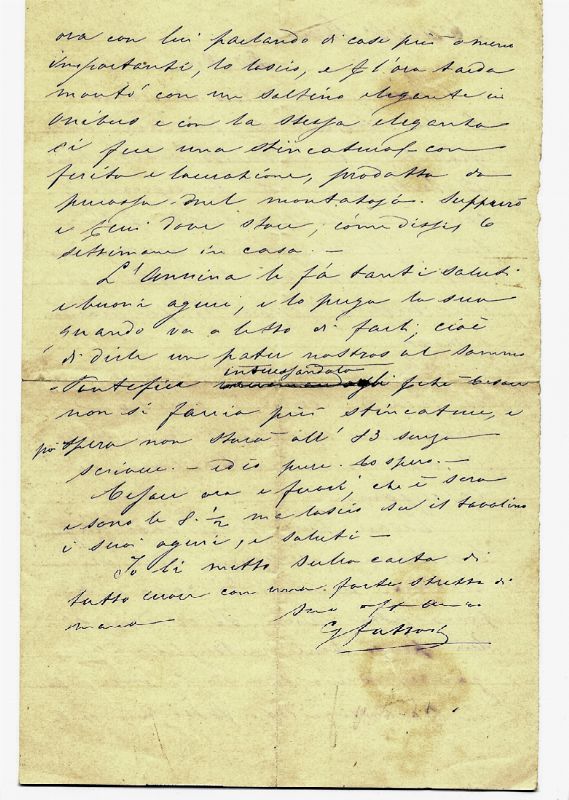 ora con lui parlando di cose più o meno
importanti, lo lascio, e p l'ora tarda
montò con un saltino elegante in
Onibus e con la stessa eleganza
si fece una stincatura con
ferita e lacerazione, prodotta da
percossa nel montatojo. Supperò
e cui dove stare, come dissi, 6
settimane in casa. —
L'Annina le fà tanti saluti
e buoni aguri, e lo prega la sera
quando va a letto di farli, cioè
di dirle un pater nostros al Sommo
Pontefice interessandolo pchè Cesare
non si faccia più stincature, e
pò spera non starà all' 83 senza
scrivere. — ed io pure lo spero. —
Cesare ora è fuori, che è sera
e sono le 8 ½ me lascio su il tavolino
i suoi aguri, e saluti —
Io li metto sulla carta di
tutto cuore con una forte stretta di
mano
Suo aff Amico